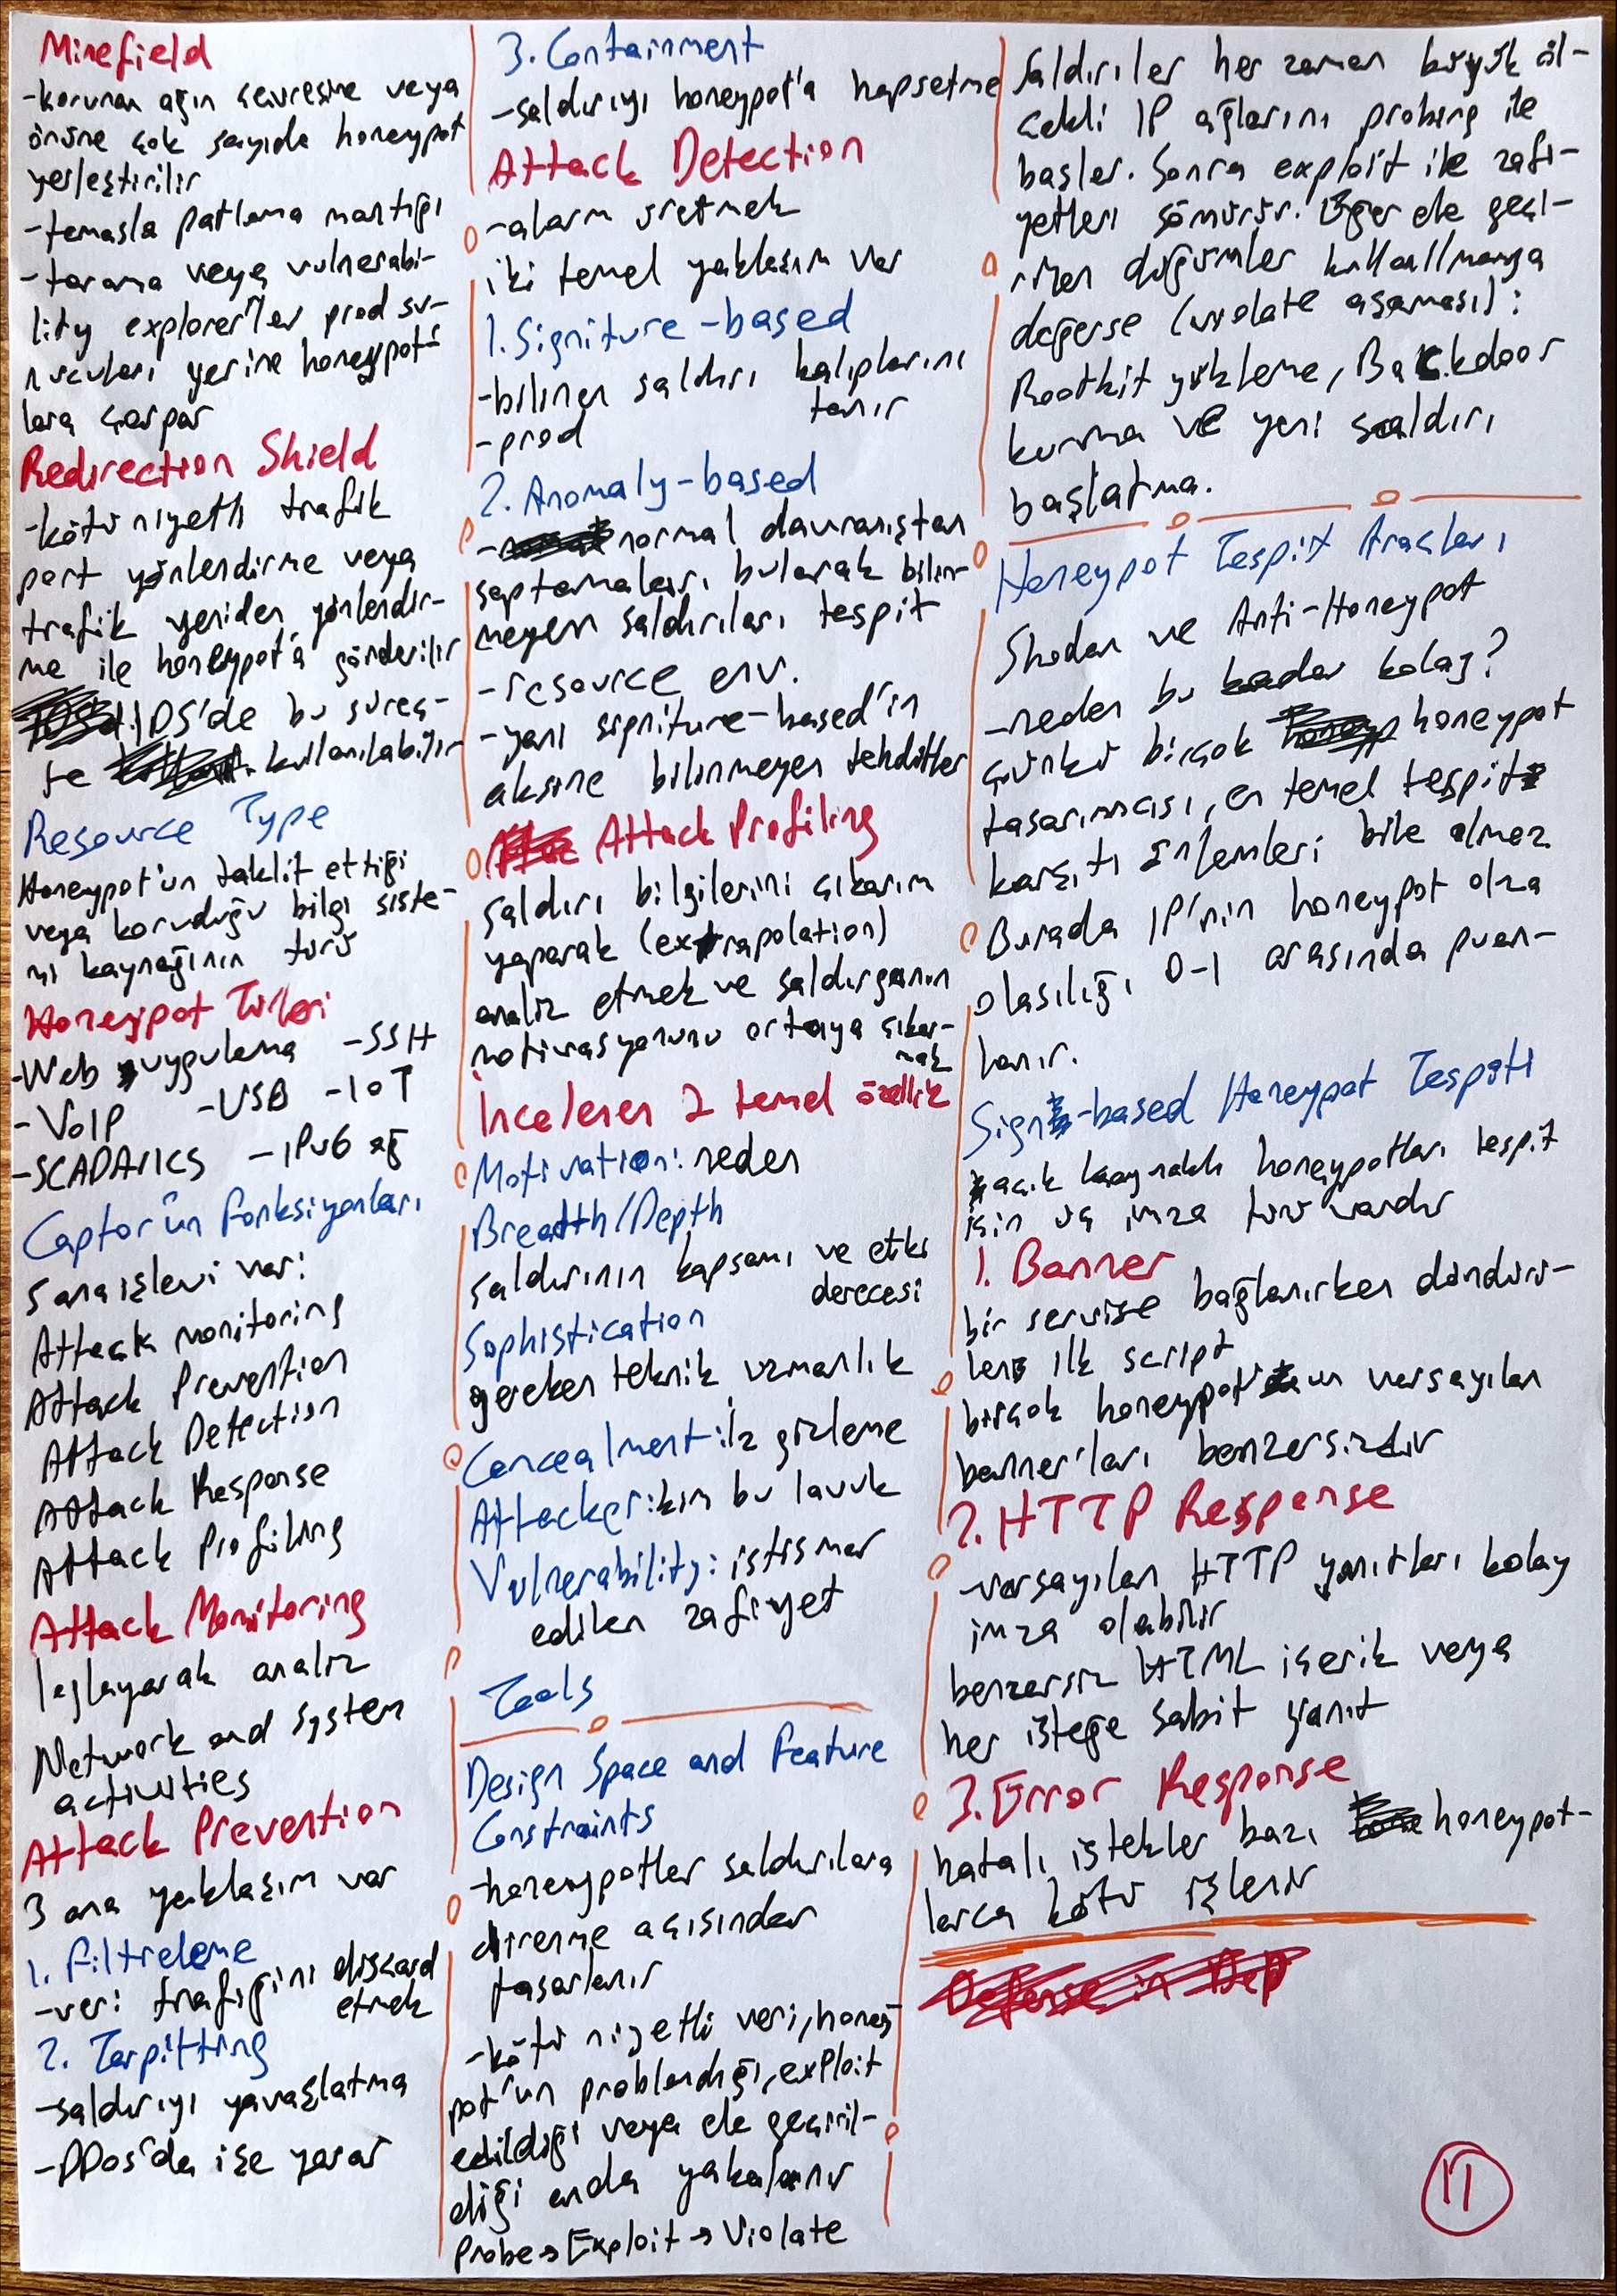 Minefield
-korunan ağın çevresine veya
önüne çok sayıda honeypot
yerleştirilir
-temasla patlama mantığı
-tarama veya vulnerabi-
lity explorer'lar prod su-
nucuları yerine honeypot-
lara çarpar
Redirection Shield
-kötü niyetli trafik
port yönlendirme veya
trafik yeniden yönlendir-
me ile honeypot'a gönderilir
IDS'de bu süreç-
te kullanılabilir
Resource Type
Honeypot'un taklit ettiği
veya koruduğu bilgi siste-
mi kaynağının türü
Honeypot Türleri
-Web uygulama -SSH
-VoIP -USB -IoT
-SCADA/ICS -IPv6 ağ
Captor'ün Fonksiyonları
5 ana işlevi var:
Attack monitoring
Attack Prevention
Attack Detection
Attack Response
Attack Profiling
Attack Monitoring
loglayarak analiz
Network and system
activities
Attack Prevention
3 ana yaklaşım var
1. Filtreleme
-veri trafiğini discard
etmek
2. Tarpitting
-saldırıyı yavaşlatma
-DDos'da işe yarar
3. Containment
-saldırıyı honeypot'a hapsetme
Attack Detection
-alarm üretmek
iki temel yaklaşım var
1. Signiture-based
-bilinen saldırı kalıplarını
tanır
-prod
2. Anomaly-based
-normal davranıştan
saptamaları bularak bilin-
meyen saldırıları tespit
-resource env.
-yani signiture-based'in
aksine bilinmeyen tehditler
Attack Profiling
saldırı bilgilerini çıkarım
yaparak (extrapolation)
analiz etmek ve saldırganın
motivasyonunu ortaya çıkar-
mak
İncelenen 2 temel özellik
Motivation: neden
Breadth/Depth
saldırının kapsamı ve etki
derecesi
Sophistication
gereken teknik uzmanlık
Concealment: iz gizleme
Attacker: kim bu lavuk
Vulnerability: istismar
edilen zafiyet
Tools
Design Space and Feature
Constraints
-honeypotlar saldırılara
direnme açısından
tasarlanır
-kötü niyetli veri, honey
pot'un problandığı, exploit
edildiği veya ele geçiril-
diği anda yakalanır
Probe→Exploit→Violate
Saldırılar her zaman büyük öl-
çekli IP ağlarını probing ile
başlar. Sonra exploit ile zafi-
yetleri sömürür. Eğer ele geçi-
rilen düğümler kullanılmaya
değerse (violate aşaması):
Rootkit yükleme, Backdoor
kurma ve yeni saldırı
başlatma.
Honeypot Tespit Araçları
Shodan ve Anti-Honeypot
-neden bu kadar kolay?
çünkü birçok honeypot
tasarımcısı, en temel tespit
karşıtı önlemleri bile almaz
Burada IP'nin honeypot olma
olasılığı 0-1 arasında puan-
lanır.
Sign-based Honeypot Tespiti
açık kaynaklı honeypotları tespit
için üç imza türü vardır
1. Banner
bir servise bağlanırken döndürü-
len ilk script
birçok honeypot'un varsayılan
banner'ları benzersizdir
2. HTTP Response
-varsayılan HTTP yanıtları kolay
imza olabilir
benzersiz HTML içerik veya
her isteğe sabit yanıt
3. Error Response
hatalı istekler bazı honeypot-
larca kötü işlenir
11